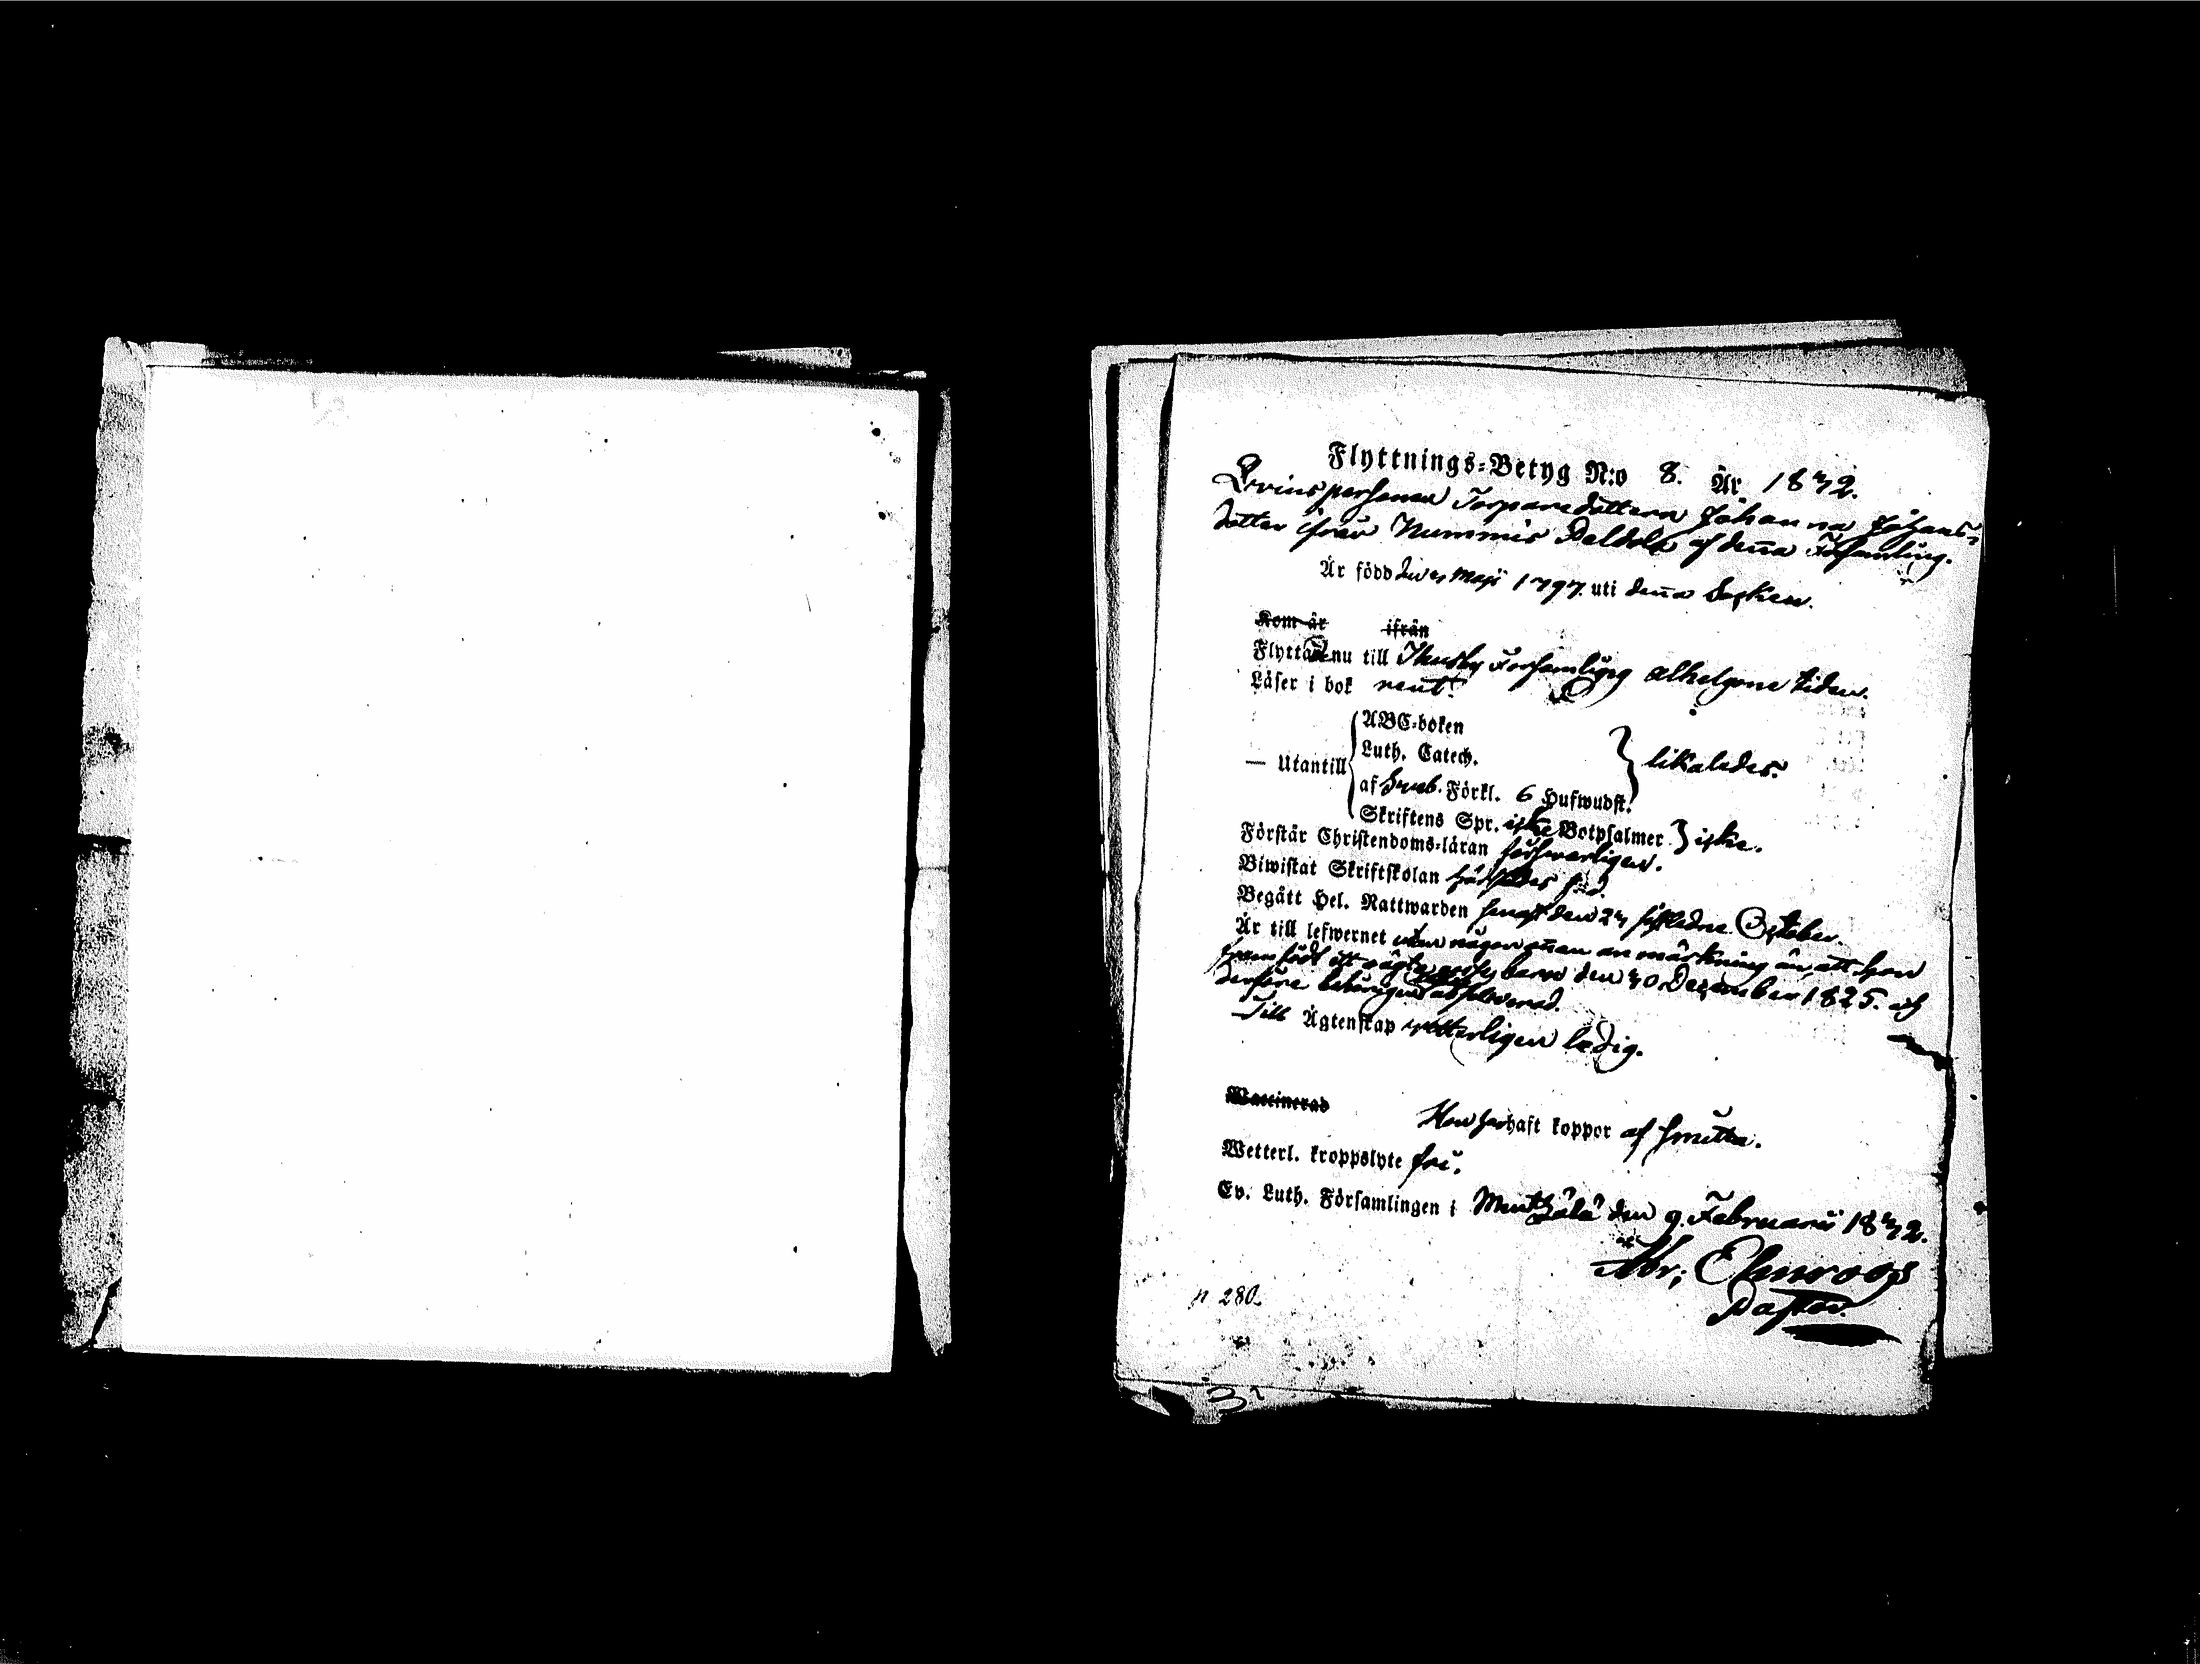 Flyttnings-Betyg N:o 8. År 1832.
Qvinspersonen Torparedottern Johanna Johans-
dotter ifrån Nummis af denna Församling.
Är född den Maji 1797 uti denna Socken.
Kom år ifrån
Flyttade nu till Thusby Församling alhelgone tiden.
Läser i bok rent.
ABC-boken
Luth. Catech.
— Utantill likaledes.
af Förkl. 6 Hufwudst.
Skriftens Spr. icke Botpsalmer icke.
Förstår Christendoms-läran försvarligen.
Biwistat Skriftskolan
Begått Hel. Nattwarden senast den sistledne October.
Är till lefwernet utan någon annan anmärkning än att hon
framfödt ett oägta barn den 30 December 1825. och
derföre behörigen absolverad.
Till Ägtenskap vetterligen ledig.
Waccinerad
Hon har haft koppor af smitta.
Wetterl. kroppslyte fri.
Ev. Luth. Församlingen i Mentzälä den 9. Februarii 1832.
Abr; Elmroos
Pastor.
p 280.